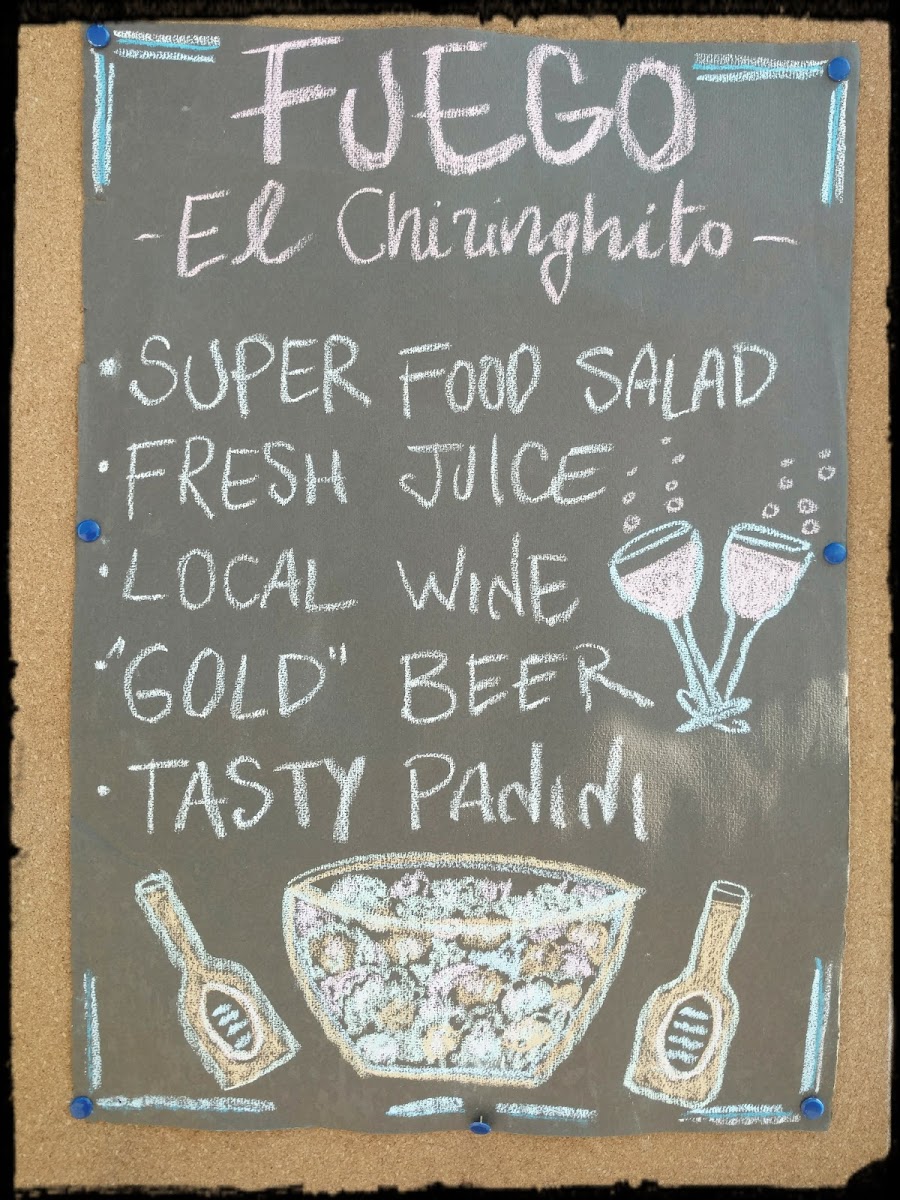 FUEGO
- El Chiringhito -
• SUPER FOOD SALAD
• FRESH JUICE
• LOCAL WINE
• "GOLD" BEER
• TASTY PANINI